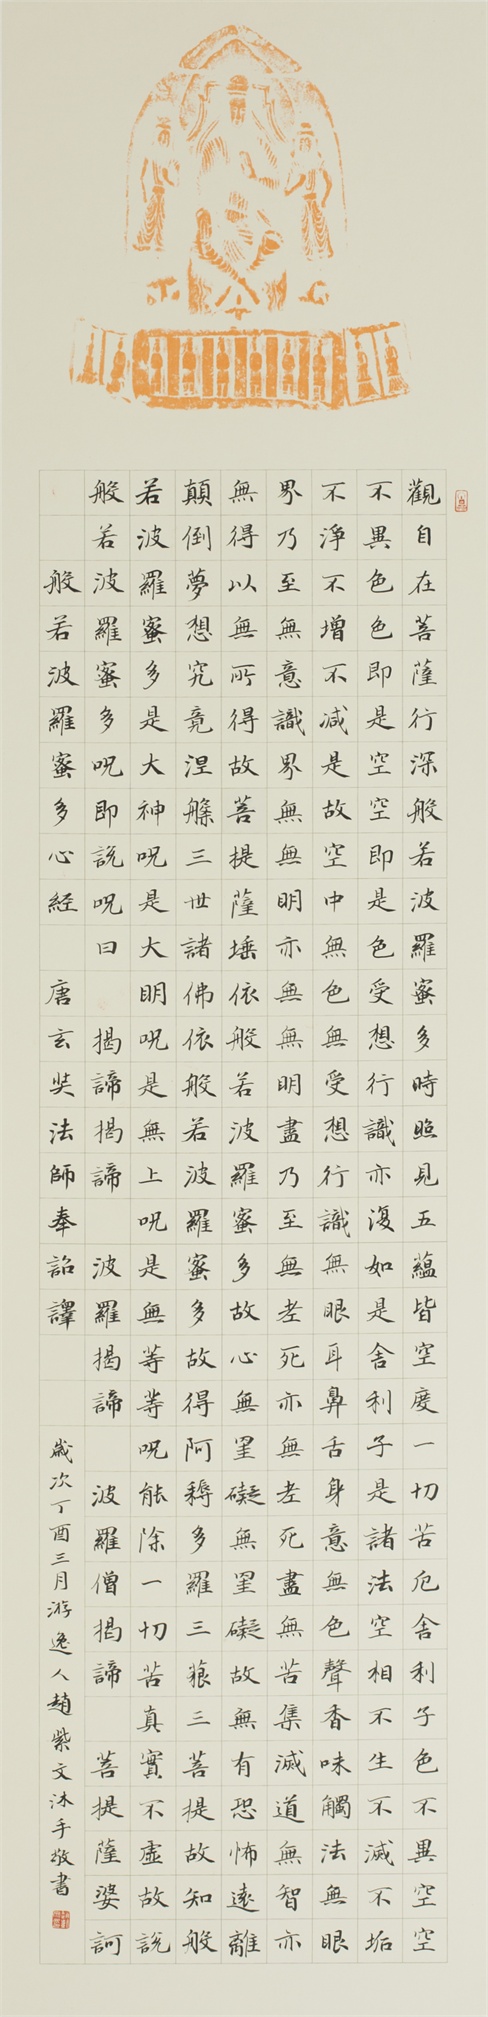 觀自在菩薩行深般若波羅蜜多時照見五蘊皆空度一切苦厄舍利子色不異空空
不異色色即是空空即是色受想行識亦復如是舍利子是諸法空相不生不滅不垢
不淨不增不減是故空中無色無受想行識無眼耳鼻舌身意無色聲香味觸法無眼
界乃至無意識界無無明亦無無明盡乃至無老死亦無老死盡無苦集滅道無智亦
無得以無所得故菩提薩埵依般若波羅蜜多故心無罣礙無罣礙故無有恐怖遠離
顛倒夢想究竟涅槃三世諸佛依般若波羅蜜多故得阿耨多羅三藐三菩提故知般
若波羅蜜多是大神呪是大明呪是無上呪是無等等呪能除一切苦真實不虛故說
般若波羅蜜多呪即說呪曰 揭諦揭諦 波羅揭諦 波羅僧揭諦 菩提薩婆訶
般若波羅蜜多心經 唐玄奘法師奉詔譯 歲次丁酉三月游逸人趙紫文沐手敬書